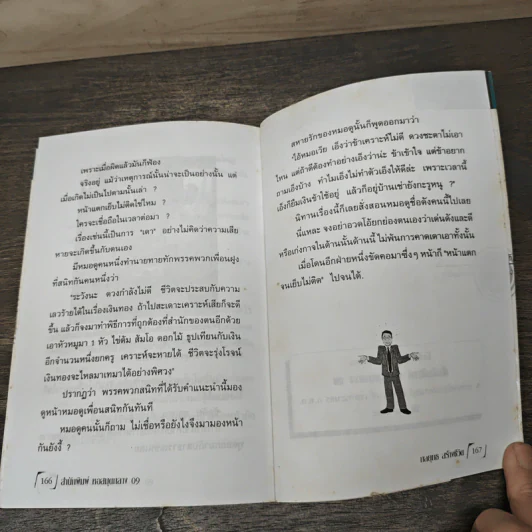 เพราะเมื่อผิดแล้วมันก็ฟ้อง
จริงอยู่ แม้ว่าเหตุการณ์นั้นน่าจะเป็นอย่างนั้น แต่
เมื่อเกิดไม่เป็นไปตามนั้นเล่า ?
หน้าแตกเย็บไม่ติดใช่ไหม ?
ใครจะเชื่อถือในเวลาต่อมา ?
เรื่องเช่นนี้เป็นการ "เดา" อย่างไม่คิดว่าความเสีย
หายจะเกิดขึ้นกับตนเอง
มีหมอดูคนหนึ่งทำนายทายทักพรรคพวกเพื่อนฝูง
ที่สนิทกันคนหนึ่งว่า
"ระวังนะ ดวงกำลังไม่ดี ชีวิตจะประสบกับความ
เลวร้ายได้ในเรื่องเงินทอง ถ้าไปสะเดาะเคราะห์เสียก็จะดี
ขึ้น แล้วก็จงมาทำพิธีการที่ถูกต้องที่สำนักของตนอีกด้วย
เอาหัวหมูมา 1 หัว ไข่ต้ม ส้มโอ ดอกไม้ ธูปเทียนกับเงิน
อีกจำนวนหนึ่งยกครู เคราะห์จะหายได้ ชีวิตจะรุ่งโรจน์
เงินทองจะไหลมาเทมาได้อย่างพิศวง"
ปรากฏว่า พรรคพวกสนิทที่ได้รับคำแนะนำนี้มอง
ดูหน้าหมอดูเพื่อนสนิทกันทันที
หมอดูคนนั้นก็ถาม ไม่เชื่อหรือยังไงจึงมามองหน้า
กันยังงี้ ?
166
สหายรักของหมอดูนั้นก็พูดออกมาว่า
"ไอ้หมอเวีย เอ็งว่าข้าเคราะห์ไม่ดี ดวงชะตาไม่เอา
ไหน แต่ถ้าดีต้องทำอย่างเอ็งว่าน่ะ ข้าเข้าใจ แต่ข้าอยาก
ถามเอ็งบ้าง ทำไมเอ็งไม่ทำตัวเอ็งให้ดีล่ะ เพราะเวลานี้
เอ็งก็ยืมเงินข้าใช้อยู่ แล้วก็อยู่บ้านเช่ายังกะรูหนู ?"
นิทานเรื่องนี้ก็เลยสั่งสอนหมอดูชื่อดังคนนี้ไปเลย
นี่แหละ จงอย่าอวดโอ้ยกย่องตนเองว่าเด่นดังและดี
หรือเก่งกาจในด้านนั้นด้านนี้ ไม่พ้นการคาดเดาเอาทั้งนั้น
เมื่อโดนอีกฝ่ายหนึ่งขัดคอมาซึ่งๆ หน้าก็ "หน้าแตก
จนเย็บไม่ติด" ไปจนได้.
167